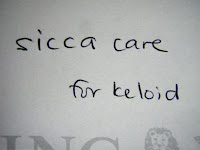 sicca care
for keloid
ING